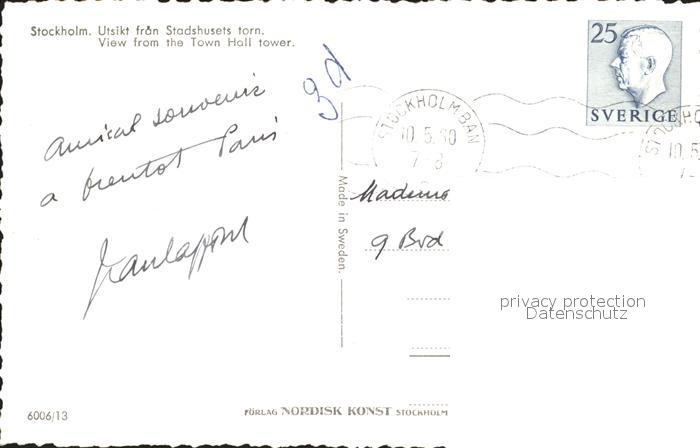 Stockholm. Utsikt från Stadshusets torn.
View from the Town Hall tower.
25
SVERIGE
STOCKHOLM BAN
10.5.60
STOCKHO
10.5
3d
Amical souvenir
a bientot Paris
Made in Sweden.
Madame
9 Bvd
privacy protection
Datenschutz
6006/13
FÖRLAG NORDISK KONST STOCKHOLM